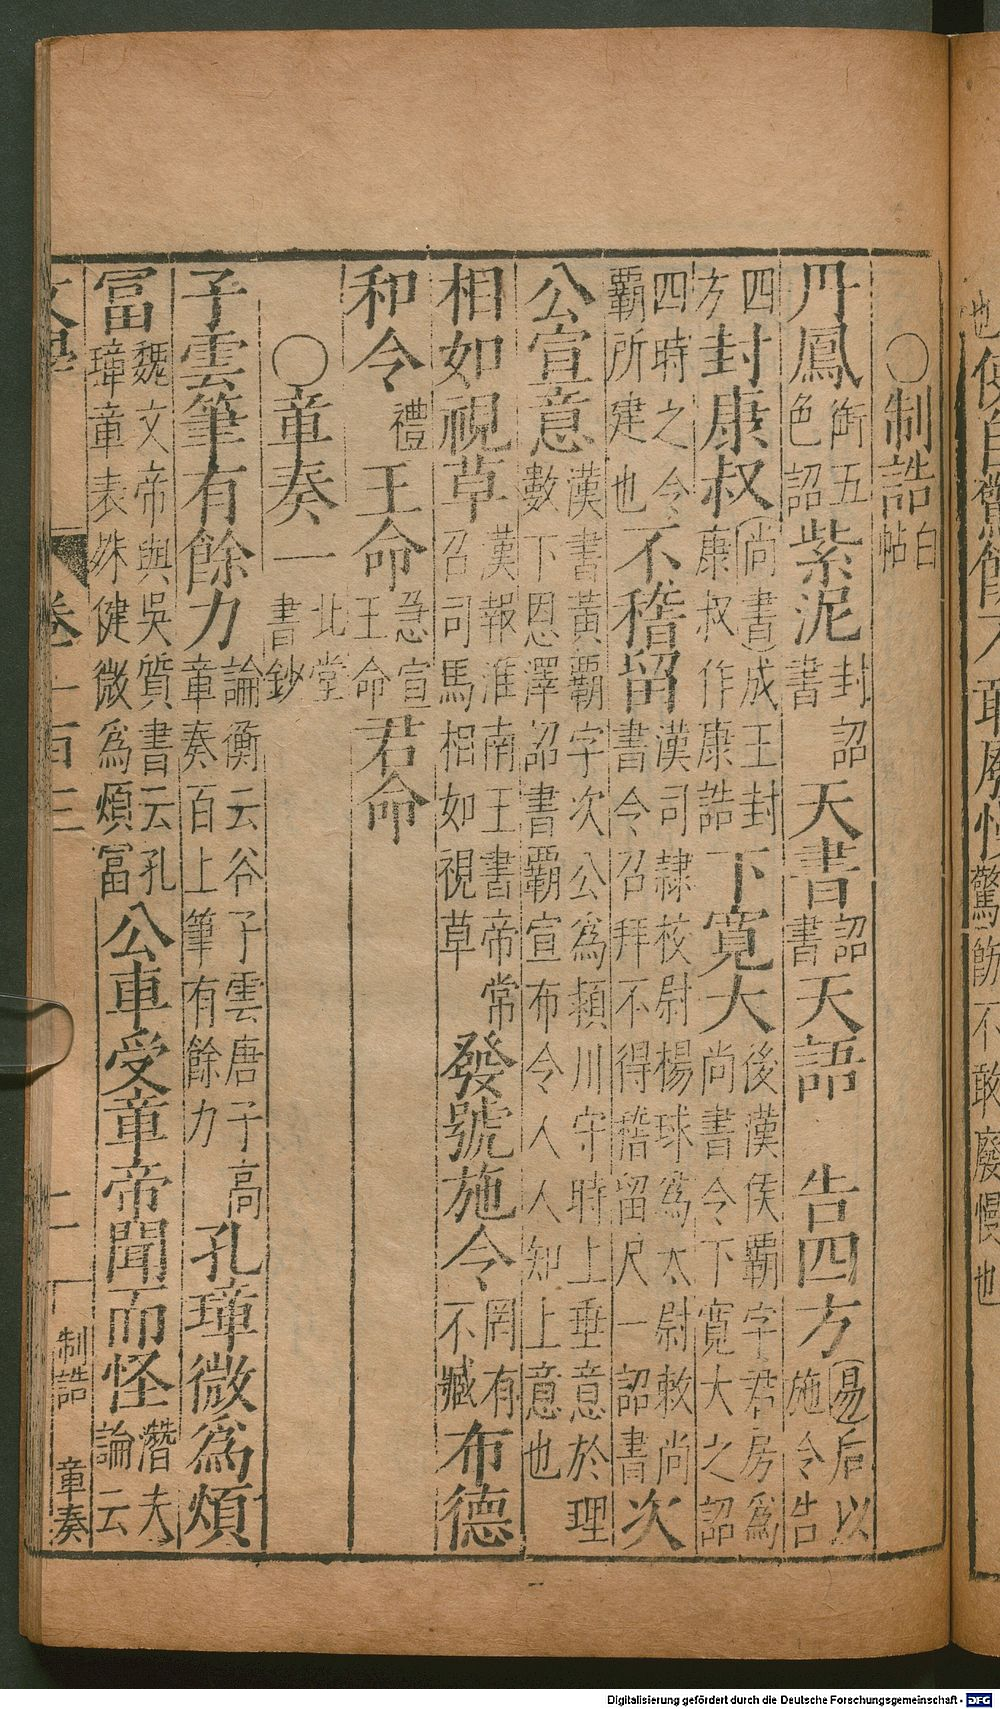 ○制誥白帖
丹鳳銜五色詔紫泥封詔書天書詔書天語　告四方易后以施令告
四方封康叔尚書成王封康叔作康誥下寬大後漢侯霸字君房爲尚書令下寬大之詔
四時之令霸所建也不稽留漢司隷校尉楊球爲太尉敕尚書令召拜不得稽留尺一詔書次
公宣意漢書黃霸字次公爲頴川守時上垂意於理數下恩澤詔書霸宣布令人人知上意也
相如視草漢報淮南王書帝常召司馬相如視草發號施令罔有不臧布德
和令禮王命急宣王命君命
○章奏一北堂書鈔
子雲筆有餘力論衡云谷子雲唐子高章奏百上筆有餘力孔璋微爲煩
冨魏文帝與吳質書云孔璋章表殊健微爲煩冨公車受章帝聞而怪潛夫論云
文學　卷一百三　二　制誥　章奏
Digitalisierung gefördert durch die Deutsche Forschungsgemeinschaft - DFG